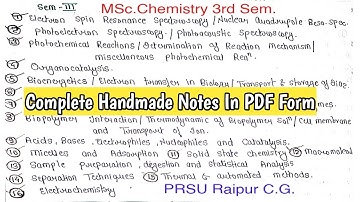 Sem - III
MSc.Chemistry 3rd Sem.
① Electron Spin Resonance Spectroscopy / Nuclear Quadrupole Reso. Spec.
② Photoelectron Spectroscopy / Photoacoustic Spectroscopy.
③ Photochemical Reactions / Determination of Reaction Mechanism / miscellaneous photochemical Reaⁿ.
④ Organocatalysis.
⑤ Bioenergetics / Electron transfer in Biology / Transport & storage of
Complete Handmade Notes In PDF Form
Biopolymer Interaction / Thermodynamic of Biopolymer Solⁿ / Cell membrane and Transport of Ion.
⑨ Acids, Bases, Electrophiles, Nucleophiles and Catalysis.
⑩ Micelles and Adsorption ⑪ Solid state chemistry ⑫
⑬ Sample Preparation, digestion and statistical Analysis
⑭ Separation Techniques ⑮ Thermal & automated methods.
⑯ Electrochemistry
PRSU Raipur C.G.